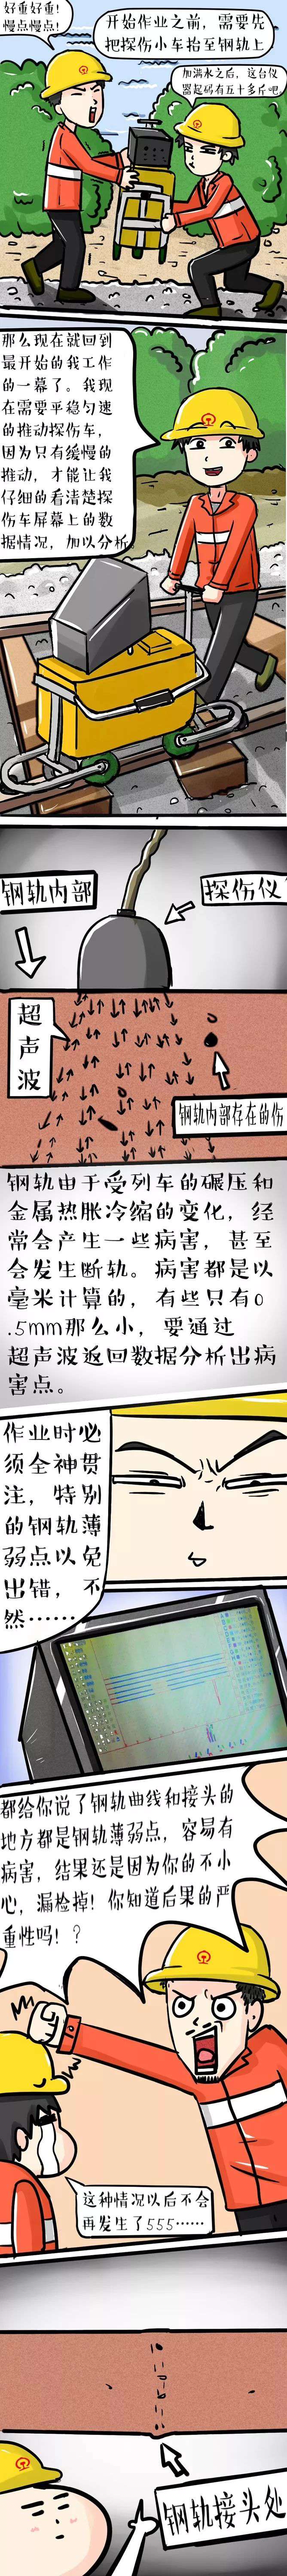 好重好重！
慢点慢点！
开始作业之前，需要先
把探伤小车抬至钢轨上
加满水之后，这台仪
器起码有五十多斤吧
那么现在就回到
最开始的我工作
的一幕了。我现
在需要平稳匀速
的推动探伤车，
因为只有缓慢的
推动，才能让我
仔细的看清楚探
伤车屏幕上的数
据情况，加以分析。
钢轨内部
探伤仪
超声波
钢轨内部存在的伤
钢轨由于受列车的碾压和
金属热胀冷缩的变化，经
常会产生一些病害，甚至
会发生断轨。病害都是以
毫米计算的，有些只有0
.5mm那么小，要通过
超声波返回数据分析出病
害点。
作业时必
须全神贯
注，特别
的钢轨薄
弱点以免
出错，不
然……
都给你说了钢轨曲线和接头的
地方都是钢轨薄弱点，容易有
病害，结果还是因为你的不小
心，漏检掉！你知道后果的严
重性吗！？
这种情况以后不会
再发生了555……
钢轨接头处